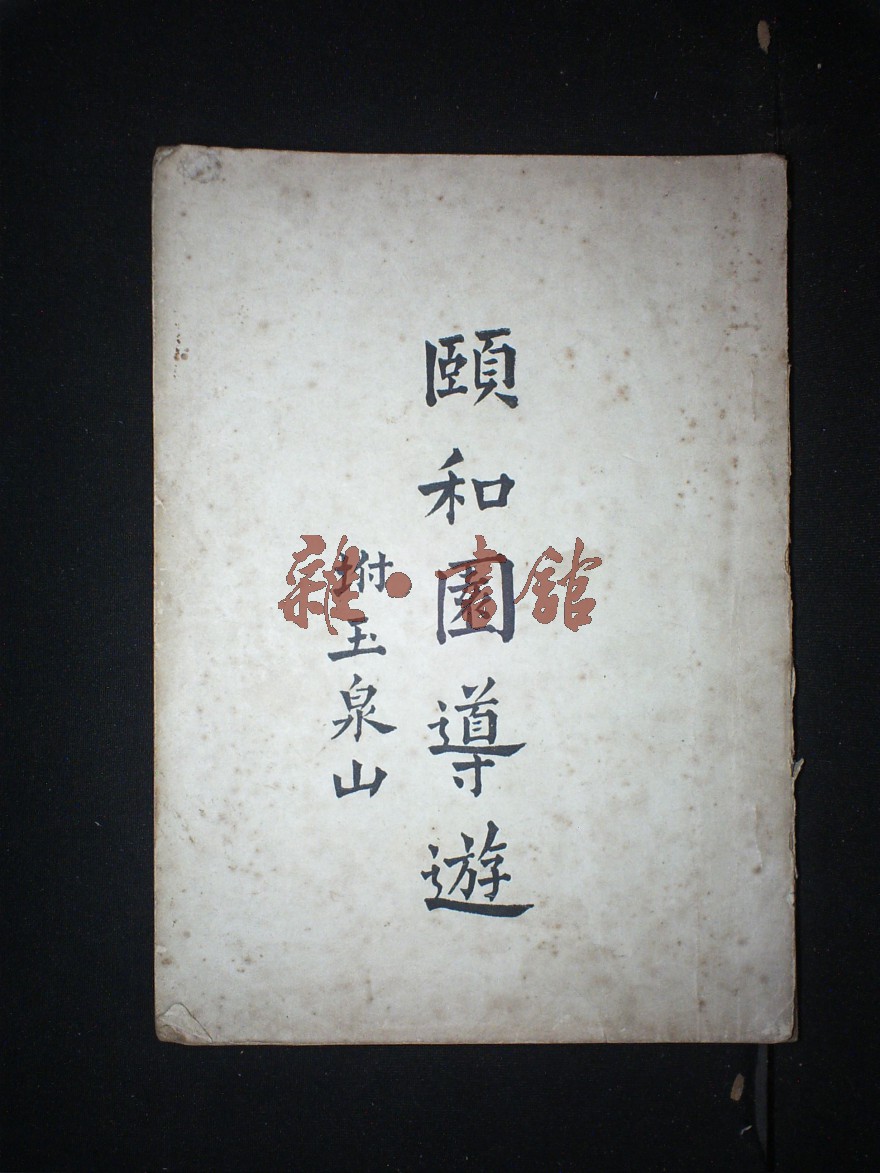 頤和園導遊
坿玉泉山
雜·書館